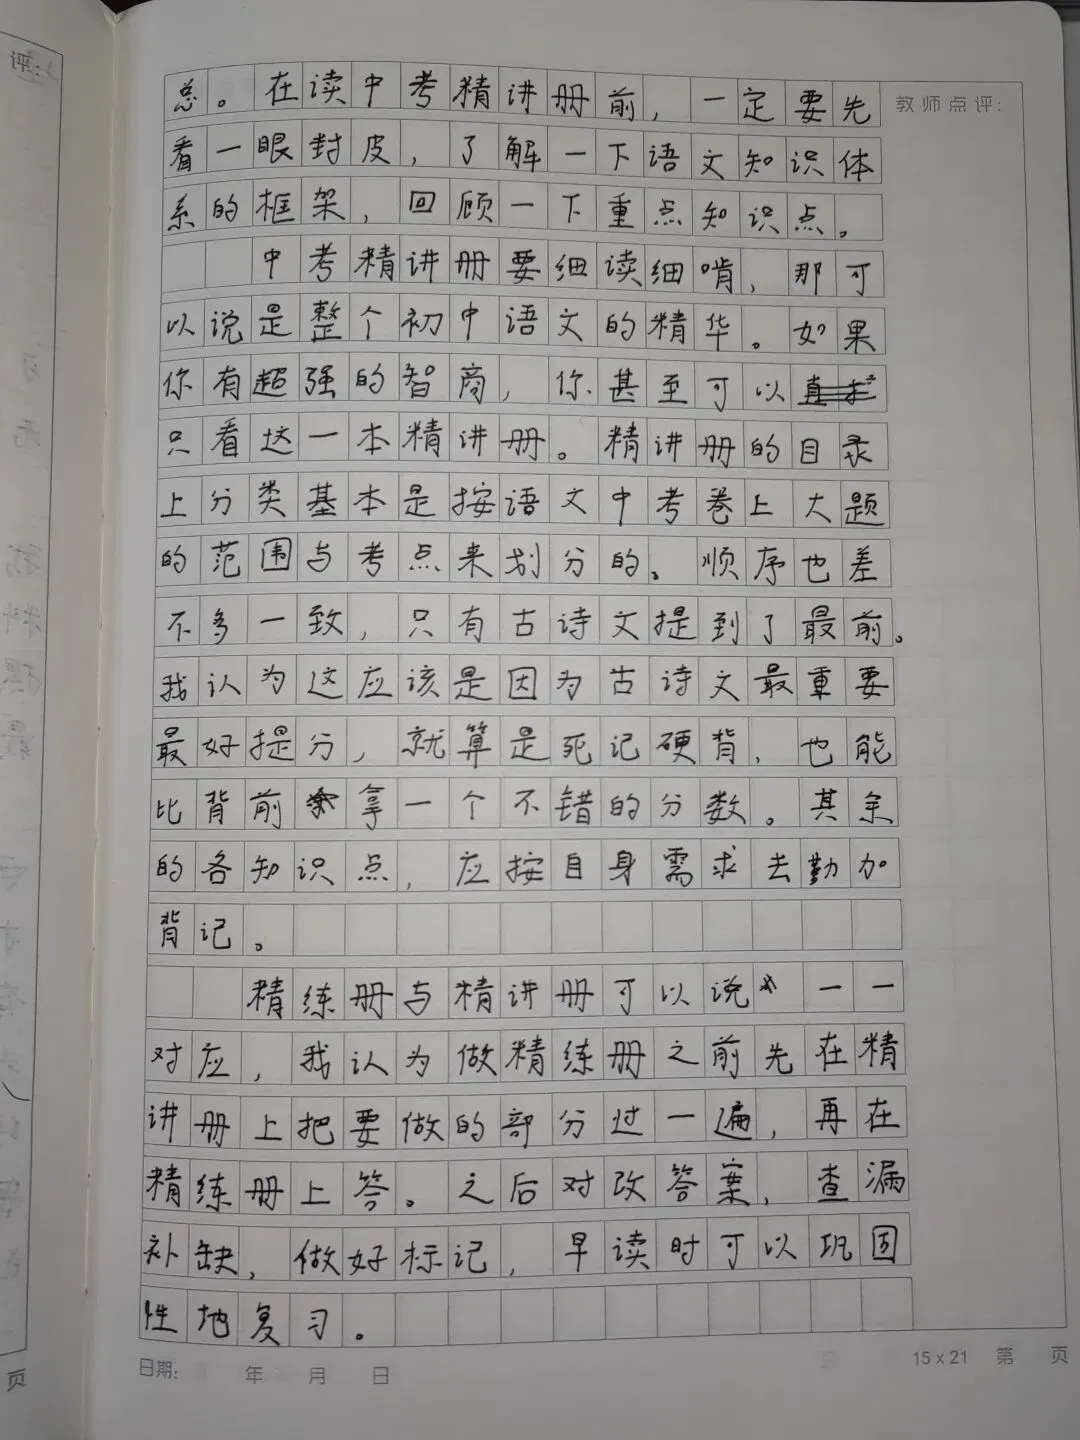 总。在读中考精讲册前，一定要先
教师点评：
看一眼封皮，了解一下语文知识体
系的框架，回顾一下重点知识点。
中考精讲册要细读细啃，那可
以说是整个初中语文的精华。如果
你有超强的智商，你甚至可以
只看这一本精讲册。精讲册的目录
上分类基本是按语文中考卷上大题
的范围与考点来划分的。顺序也差
不多一致，只有古诗文提到了最前。
我认为这应该是因为古诗文最重要
最好提分，就算是死记硬背，也能
比背前拿一个不错的分数。其余
的各知识点，应按自身需求去勤加
背记。
精练册与精讲册可以说一一
对应，我认为做精练册之前先在精
讲册上把要做的部分过一遍，再在
精练册上答。之后对改答案，查漏
补缺，做好标记，早读时可以巩固
性地复习。
日期： 年 月 日
15×21 第 页
页